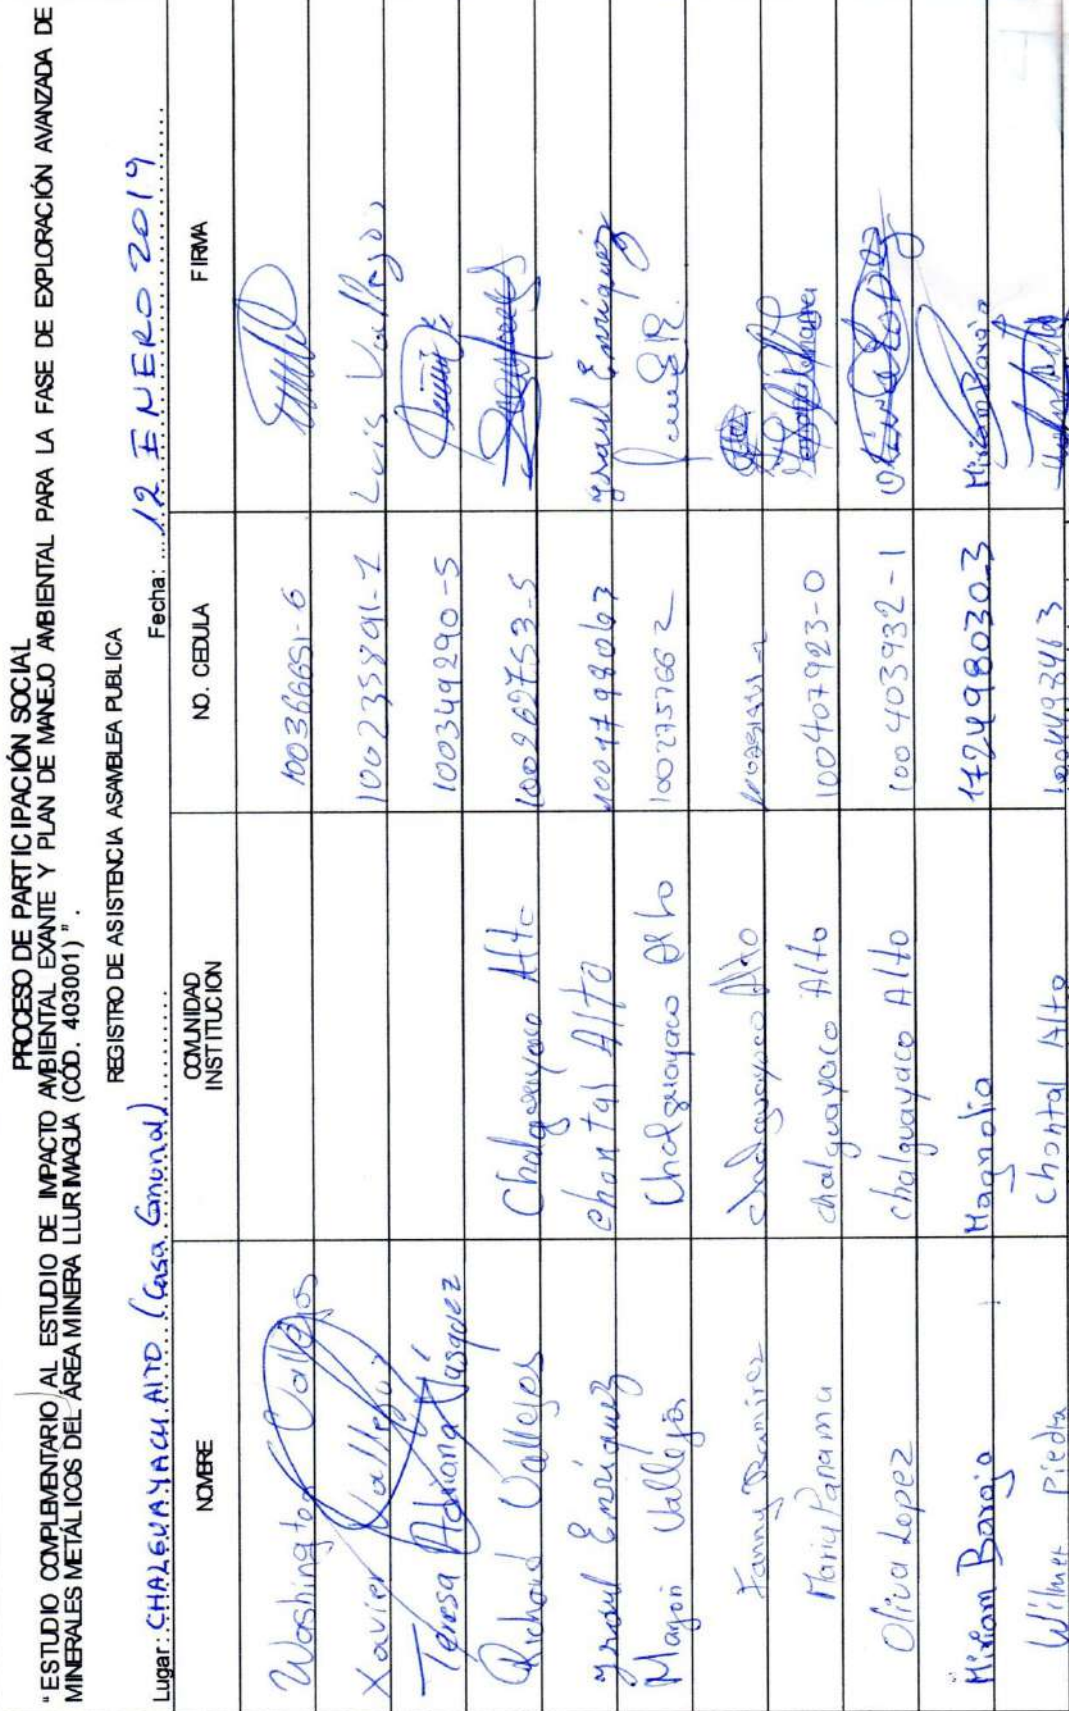 PROCESO DE PARTICIPACIÓN SOCIAL
"ESTUDIO COMPLEMENTARIO AL ESTUDIO DE IMPACTO AMBIENTAL EXANTE Y PLAN DE MANEJO AMBIENTAL PARA LA FASE DE EXPLORACIÓN AVANZADA DE
MINERALES METÁLICOS DEL ÁREA MINERA LLURIMAGUA (CÓD. 403001)".
REGISTRO DE ASISTENCIA ASAMBLEA PUBLICA
Lugar: CHALGUAYACU ALTO (Casa Comunal) Fecha: 12 ENERO 2019
NOMBRE COMUNIDAD INSTITUCION NO. CEDULA FIRMA
Washington Vallejos 100366651-6
Xavier Vallejos 100235891-1 Luis Vallejos
Teresa Adriana Vasquez 100349290-5
Richard Vallejos Chalguayaco Alto 100262753-5
Ysrael Enriquez Chontal Alto 1001798067 Ysrael Enriquez
Magon Vallejos Chalguayaco Alto 1002757662
Fanny Ramirez Chalguayaco Alto
Maria Panama chalguayaco Alto 100407923-0
Oliva Lopez chalguayaco Alto 100403932-1
Miriam Barajo Magnolia 1724980303 Miriam Barajo
Wilmer Piedra Chontal Alto 1004498463